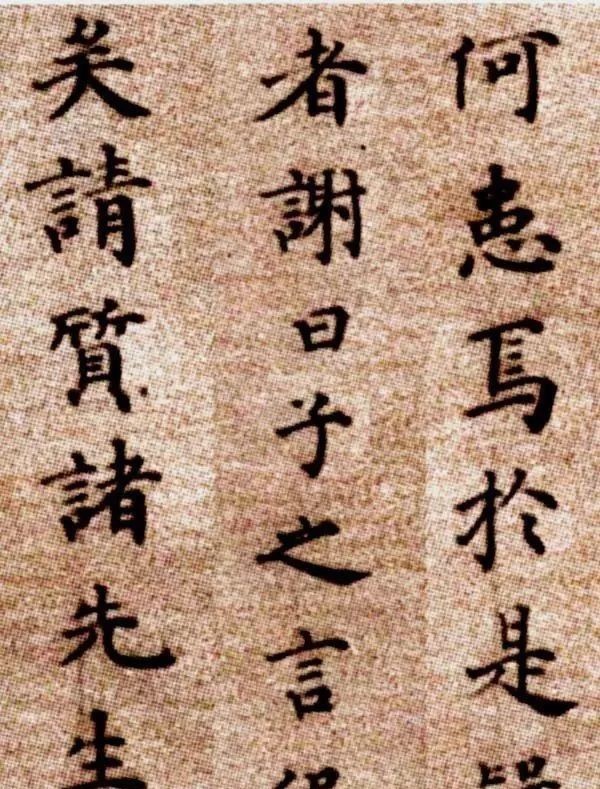 何患焉於是
者謝曰子之言
矣請質諸先生